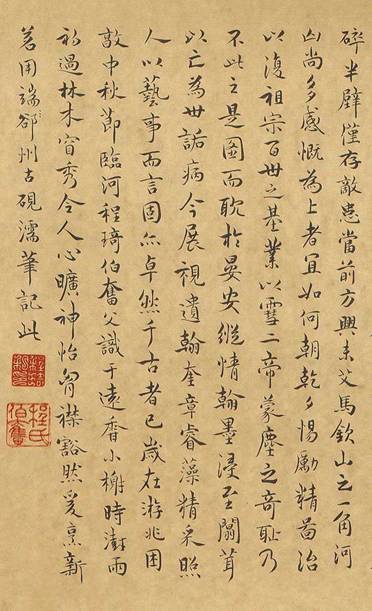 碎半壁僅存敵患當前方興未艾馬欽山之一角河
山尚多感慨為上者宜如何朝乾夕惕勵精圖治
以復祖宗百世之基業以雪二帝蒙塵之奇恥乃
不此之是圖而耽於晏安縱情翰墨浸至闒茸
以亡為世詬病今展視遺翰奎章睿藻精采照
人以藝事而言固亦卓然千古者已歲在游兆困
敦中秋節臨河程琦伯奮父識于遠香小榭時澍雨
初過林木窅秀令人心曠神怡胷襟豁然爰烹新
茗用端州古硯濡筆記此
程氏伯奮